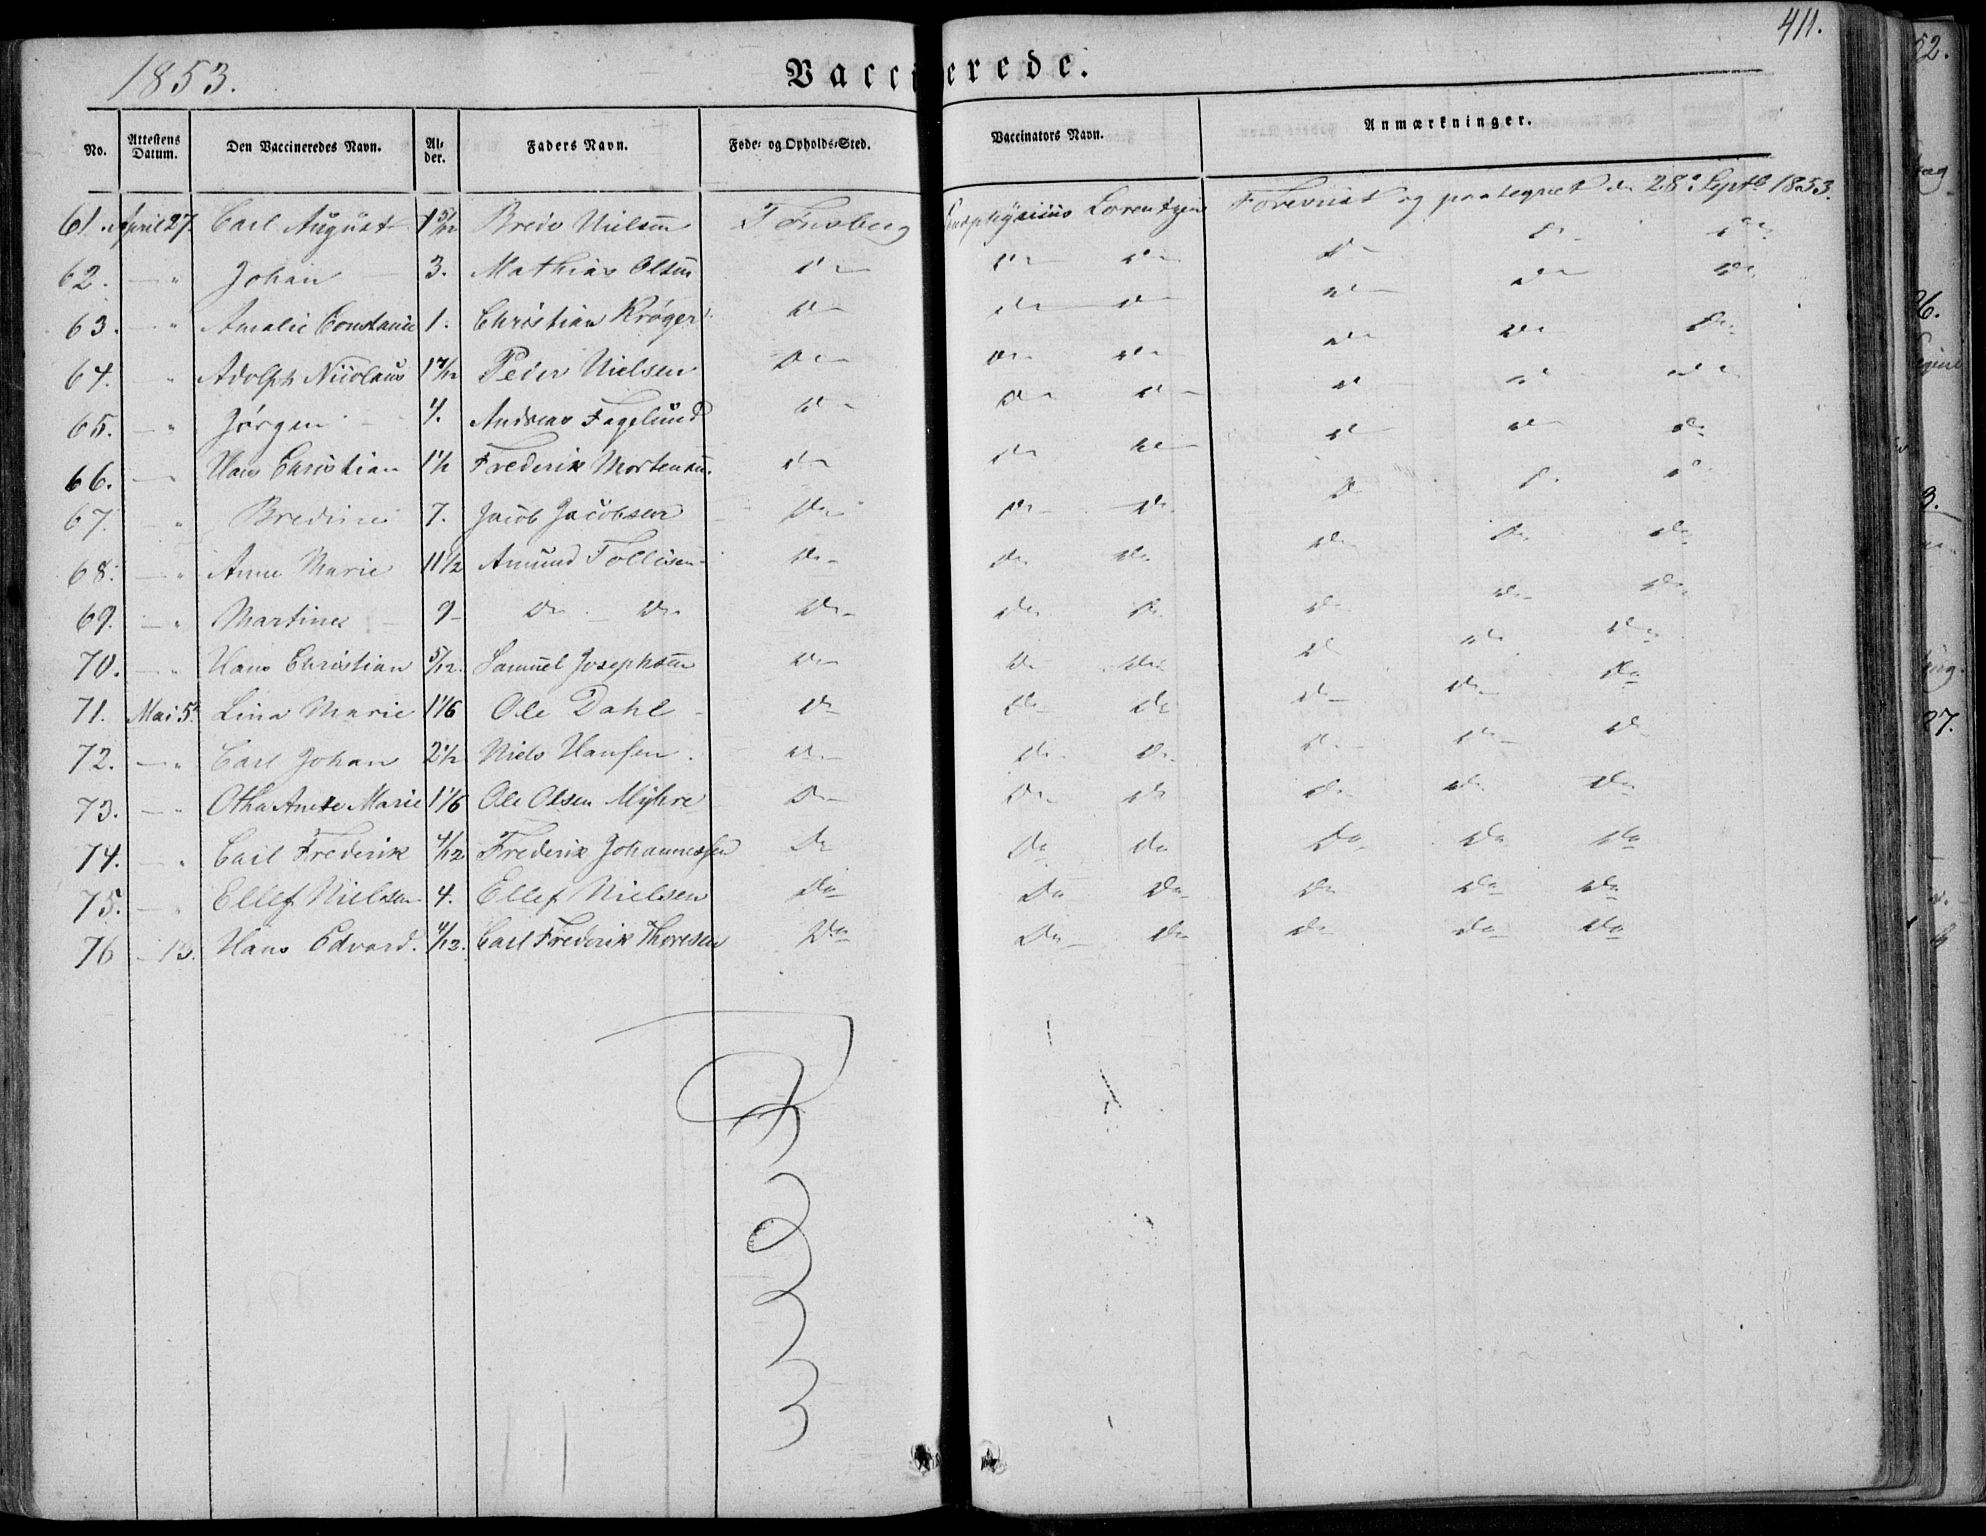 1853. Vaccinerede. 411.
No. Attestens Datum. Den Vaccineredes Navn. Al-der. Faders Navn. Føde- og Opholds-Sted. Vaccinators Navn. Anmærkninger.
61. April 27. Carl August 1 5/12 Brede Nielsen Tønsberg Lorentzen Foreviist og paategnet d. 28 Septb 1853.
62. — " Johan — 3. Mathias Olsen Do Do Do Do Do Do
63. — " Amalie Constance 1. Christian Krøger Do Do Do Do Do Do
64. — " Adolph Nicolaus Peder Nielsen Do Do Do Do Do Do
65. — " Jørgen — 4. Andreas Fagelund Do Do Do Do Do Do
66. — " Hans Christian 1½ Frederik Mortensen. Do Do Do Do Do Do
67. — " Bredine 7. Jacob Jacobsen Do Do Do Do Do Do
68. — " Anne Marie 11½ Amund Tollisen Do Do Do Do Do Do
69. — " Martine — 9 — Do Do Do Do Do Do Do Do
70. — " Hans Christian 5/12. Samuel Josephsen Do Do Do Do Do Do
71. Mai 5 Lina Marie 1 1/6 Ole Dahl Do Do Do Do Do Do
72. — " Carl Johan 2½ Niels Hansen. Do Do Do Do Do Do
73. — " Otha Anette Marie 1 1/6 Ole Olsen Myhre Do Do Do Do Do Do
74. — " Carl Frederik 4/12 Frederik Johannessen Do Do Do Do Do Do
75. — " Ellef Nielsen 4. Ellef Nielsen Do Do Do Do Do Do
76 — Hans Edvard. 4/12. Carl Frederik Thoresen Do Do Do Do Do Do